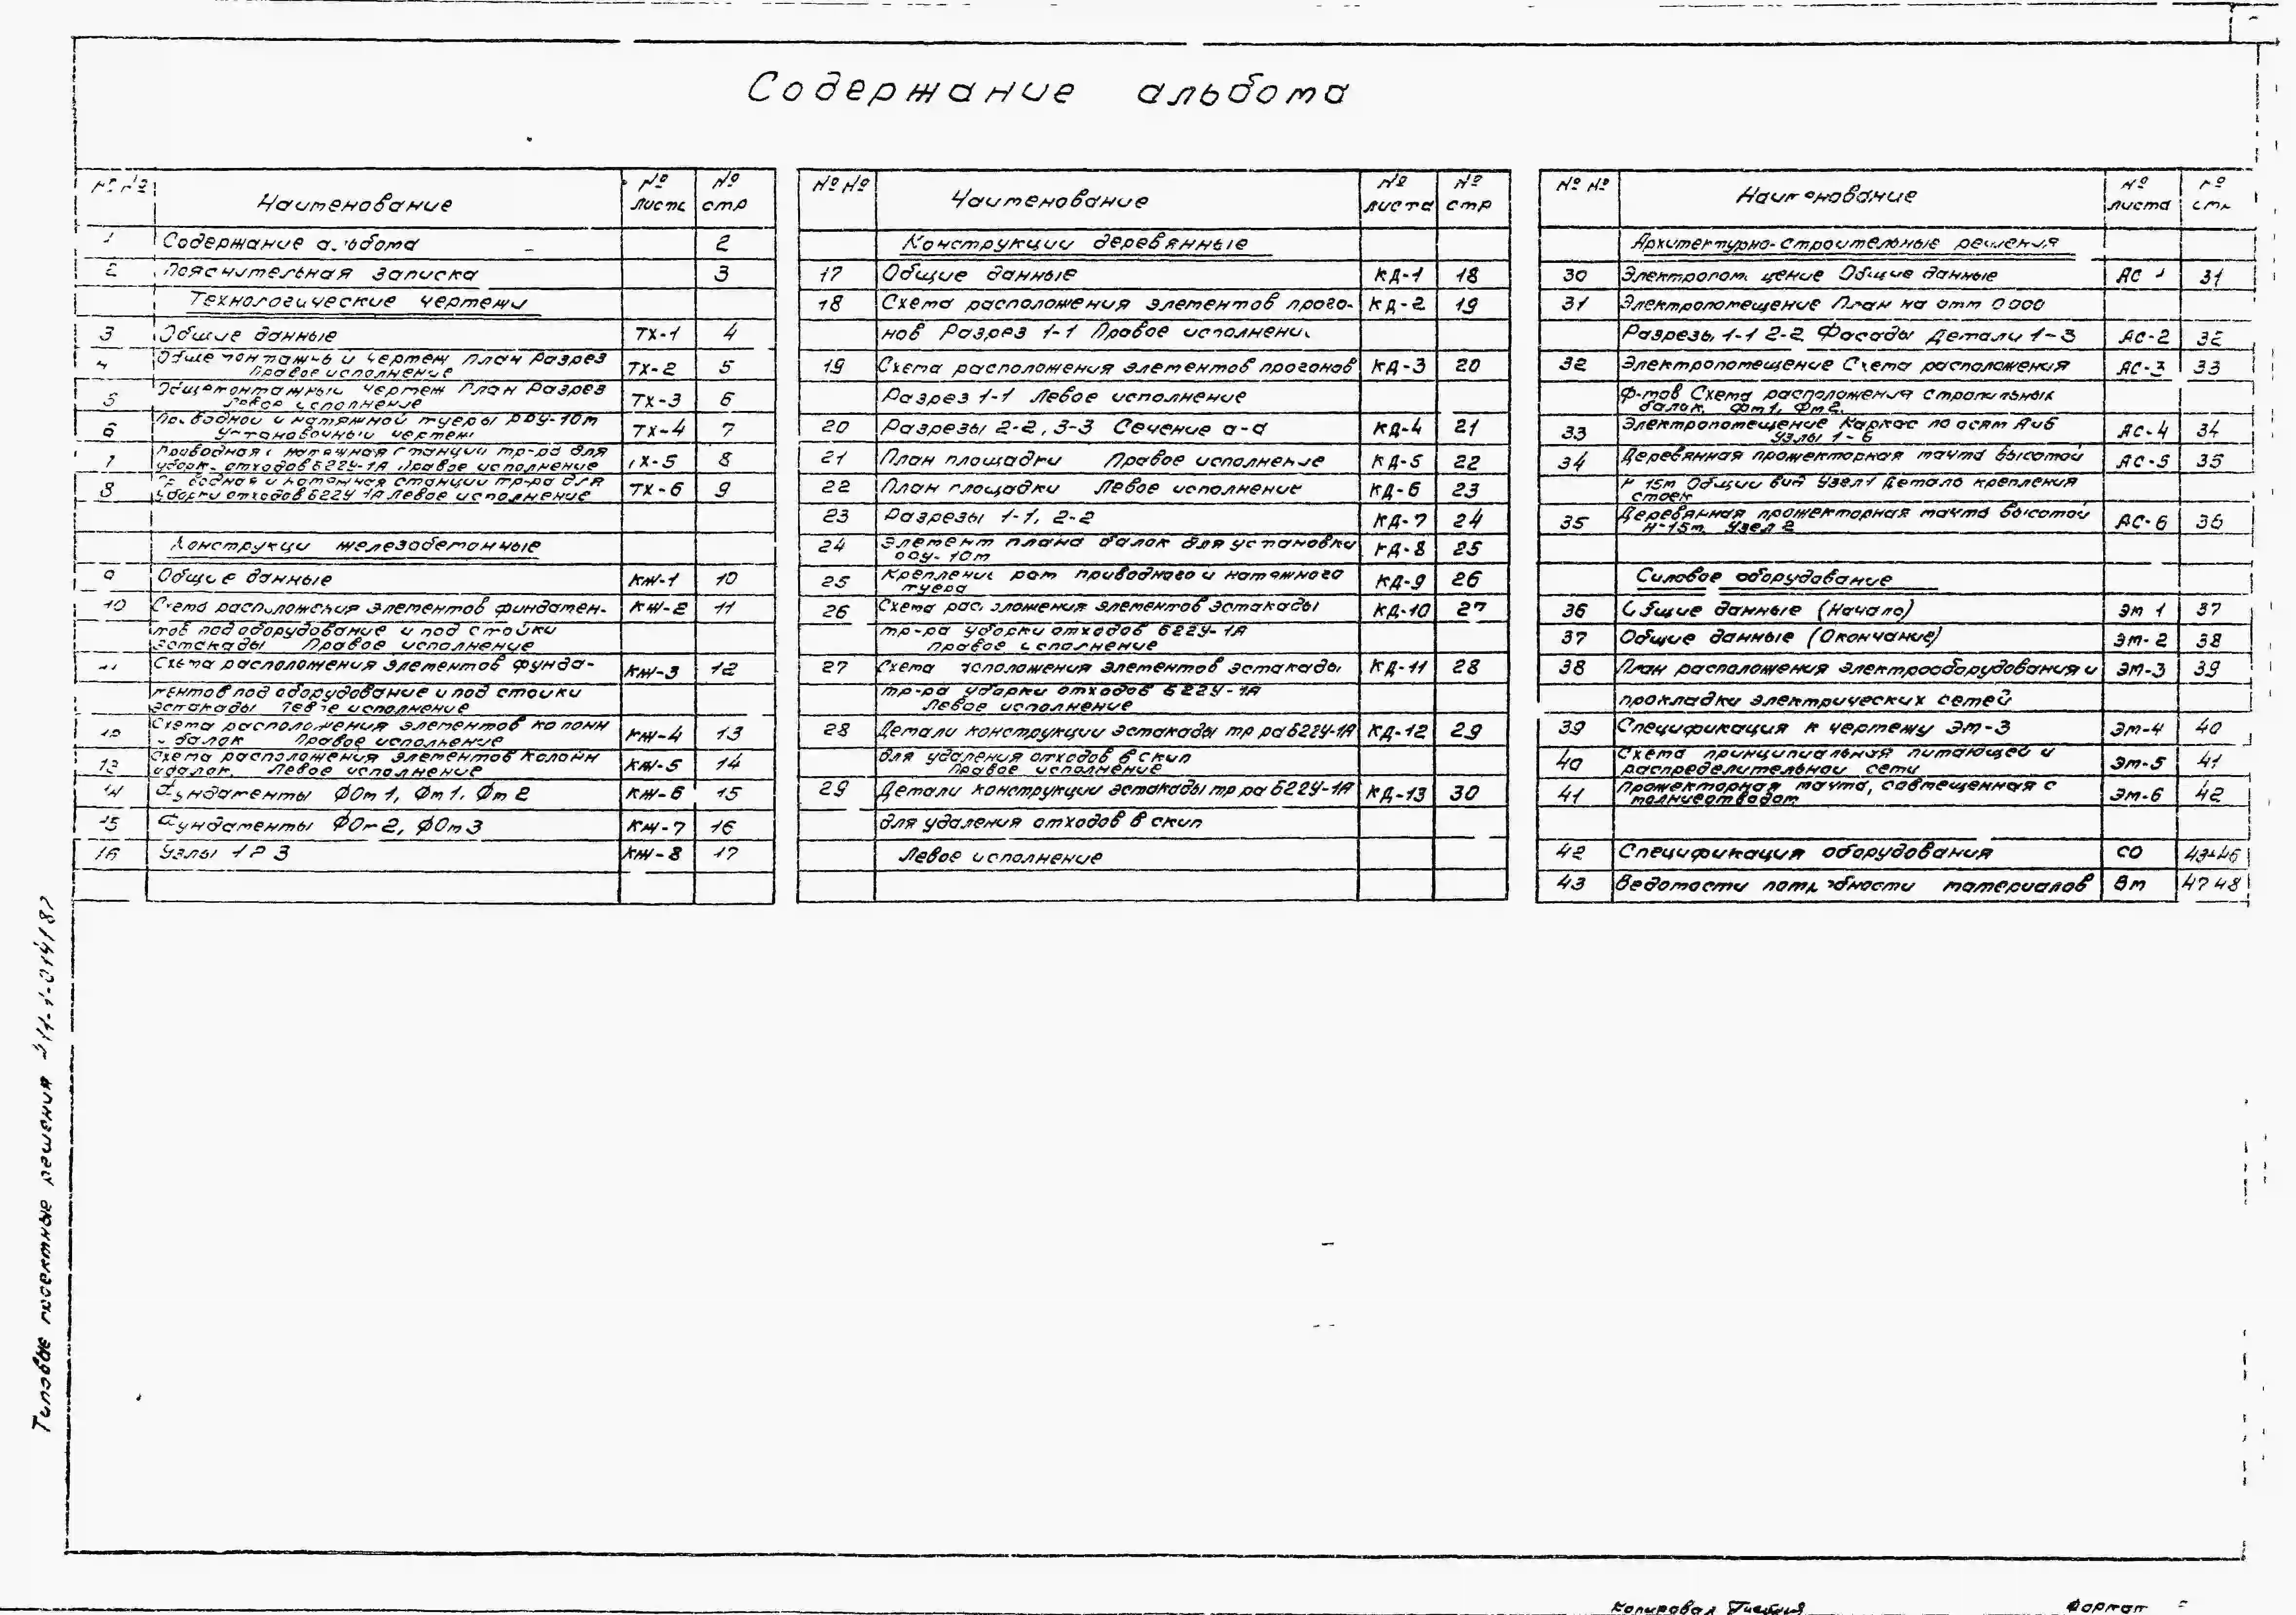 Содержание альбома
№ №
Наименование
№ листа
№ стр
1 Содержание альбома 2
2 Пояснительная записка 3
Технологические чертежи
3 Общие данные ТХ-1 4
4 Общемонтажный чертеж План Разрез ТХ-2 5
Правое исполнение
5 Общемонтажный чертеж План Разрез ТХ-3 6
Левое исполнение
6 Приводной и натяжной туеры РОУ-10м ТХ-4 7
Установочный чертеж
7 Приводная и натяжная станции тр-ра для ТХ-5 8
уборк. отходов Б22У-1А Правое исполнение
8 натяжная станции тр-ра для ТХ-6 9
уборки отходов Б22У-1А Левое исполнение
Конструкци железобетонные
9 Общие данные КЖ-1 10
10 Схема расположения элементов фундамен- КЖ-2 11
тов под оборудование и под стойки
эстакады Правое исполнение
11 Схема расположения элементов фунда- КЖ-3 12
ментов под оборудование и под стойки
эстакады Левое исполнение
12 Схема расположения элементов колонн КЖ-4 13
и балок Правое исполнение
13 Схема расположения элементов колонн КЖ-5 14
и балок. Левое исполнение
14 Фундаменты ФОм1, Фм1, Фм2 КЖ-6 15
15 Фундаменты ФОм2, ФОм3 КЖ-7 16
16 Узлы 1 2 3 КЖ-8 17
№ №
Наименование
№ листа
№ стр
Конструкции деревянные
17 Общие данные КД-1 18
18 Схема расположения элементов прого- КД-2 19
нов Разрез 1-1 Правое исполнение
19 Схема расположения элементов прогонов КД-3 20
Разрез 1-1 Левое исполнение
20 Разрезы 2-2, 3-3 Сечение а-а КД-4 21
21 План площадки Правое исполнение КД-5 22
22 План площадки Левое исполнение КД-6 23
23 Разрезы 1-1, 2-2 КД-7 24
24 Элемент плана балок для установки КД-8 25
РОУ-10м
25 Крепление рам приводного и натяжного КД-9 26
туера
26 Схема расположения элементов эстакады КД-10 27
тр-ра уборки отходов Б22У-1А
Правое исполнение
27 Схема расположения элементов эстакады КД-11 28
тр-ра уборки отходов Б22У-1А
Левое исполнение
28 Детали конструкции эстакады тр ра Б22У-1А КД-12 29
для удаления отходов в скип
Правое исполнение
29 Детали конструкции эстакады тр ра Б22У-1А КД-13 30
для удаления отходов в скип
Левое исполнение
№ №
Наименование
№ листа
№ стр
Архитектурно-строительные решения
30 Электропомещение Общие данные АС 1 31
31 Электропомещение План на отм 0 000
Разрезы 1-1 2-2 Фасады Детали 1-3 АС-2 32
32 Электропомещение Схема расположения АС-3 33
ф-тов Схема расположения стропильных
балок. Фм1, Фм2.
33 Электропомещение Каркас по осям А и Б АС-4 34
Узлы 1-6
34 Деревянная прожекторная мачта высотой АС-5 35
Н 15м Общий вид Узел 1 Деталь крепления
стоек
35 Деревянная прожекторная мачта высотой АС-6 36
Н-15м. Узел 2
Силовое оборудование
36 Общие данные (Начало) ЭМ 1 37
37 Общие данные (Окончание) ЭМ-2 38
38 План расположения электрооборудования и ЭМ-3 39
прокладки электрических сетей
39 Спецификация к чертежу ЭМ-3 ЭМ-4 40
40 Схема принципиальная питающей и ЭМ-5 41
распределительной сети
41 Прожекторная мачта, совмещенная с ЭМ-6 42
молниеотводом
42 Спецификация оборудования СО 43-46
43 Ведомости потребности материалов ВМ 47 48
Типовые проектные решения
Копировал
Формат